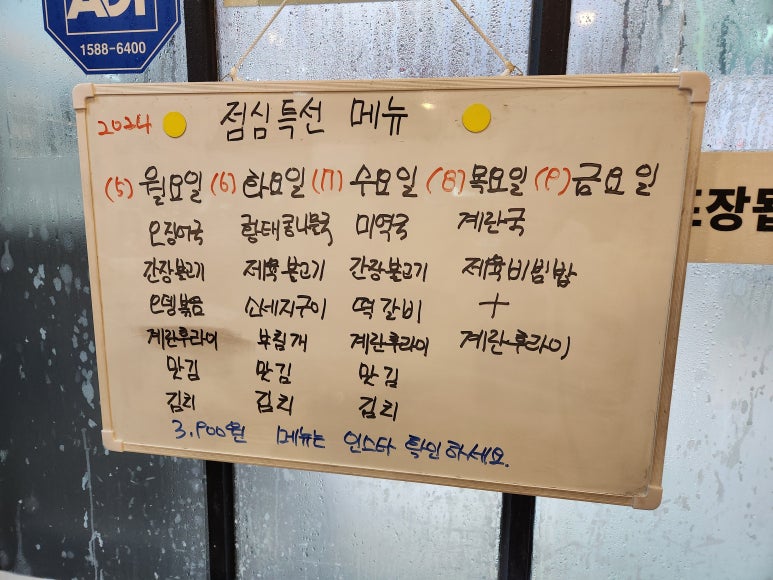 ADT
1588-6400
2024 점심특선 메뉴
(5) 월요일 (6) 화요일 (7) 수요일 (8) 목요일 (9) 금요일
오징어국 황태콩나물국 미역국 계란국
간장불고기 제육불고기 간장불고기 제육비빔밥
오뎅볶음 소세지구이 떡갈비 +
계란후라이 부침개 계란후라이 계란후라이
맛김 맛김 맛김
김치 김치 김치
3,900원 메뉴는 인스타 확인하세요.
장됩